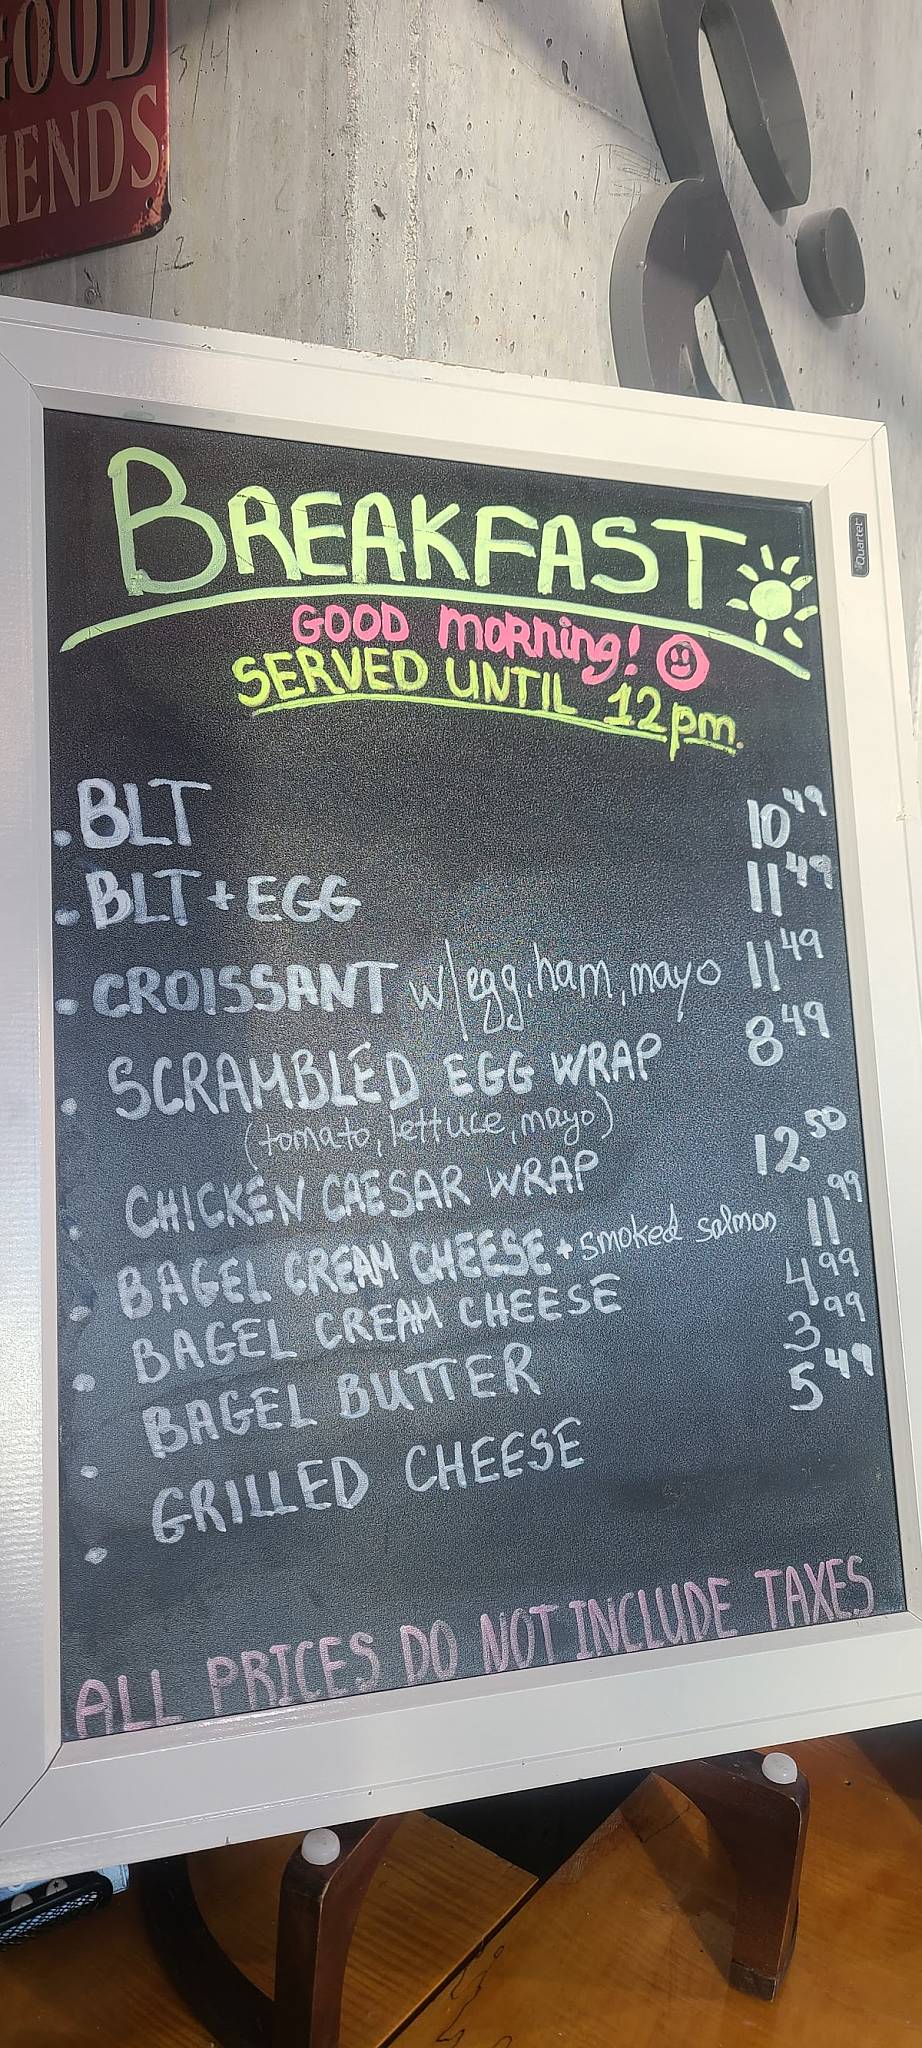 GOOD
IENDS
Quartet
BREAKFAST
GOOD MORNING!
SERVED UNTIL 12pm.
• BLT 10 49
• BLT + EGG 11 49
• CROISSANT w/egg, ham, mayo 11 49
• SCRAMBLED EGG WRAP 8 49
(tomato, lettuce, mayo)
• CHICKEN CAESAR WRAP 12 50
• BAGEL CREAM CHEESE + smoked salmon 11 99
• BAGEL CREAM CHEESE 4 99
• BAGEL BUTTER 3 99
• GRILLED CHEESE 5 49
ALL PRICES DO NOT INCLUDE TAXES